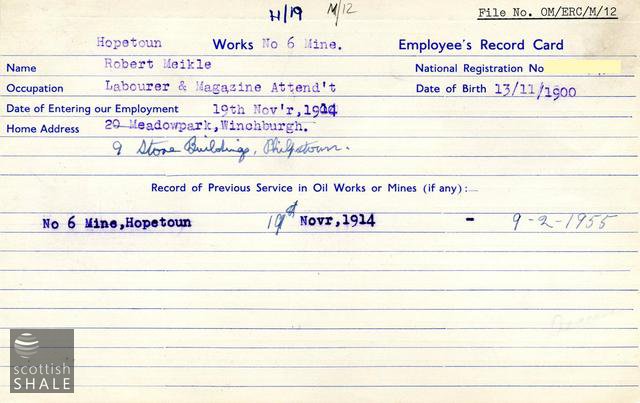 H/19 M/12 File No. OM/ERC/M/12
Hopetoun Works No 6 Mine. Employee's Record Card
Name Robert Meikle National Registration No
Occupation Labourer & Magazine Attend't Date of Birth 13/11/1900
Date of Entering our Employment 19th Nov'r, 1914
Home Address 20 Meadowpark, Winchburgh.
9 Store Buildings, Philpstoun.
Record of Previous Service in Oil Works or Mines (if any):—
No 6 Mine, Hopetoun 19th Novr, 1914 - 9-2-1955
scottish
SHALE